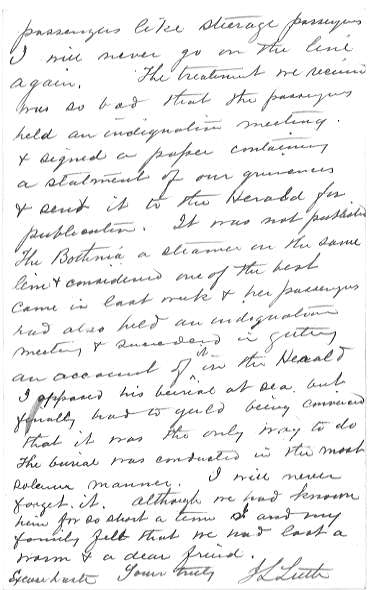 passengers like steerage passengers
I will never go on the line
again. The treatment we received
was so bad that the passengers
held an indignation meeting.
& signed a paper containing
a statment of our grievances
& send it to the Herald for
publication. It was not published
The Bothnia a steamer on the same
line & considered one of the best
came in last week & her passengers
had also held an indignation
meeting & succeeded in getting
an account of it in the Herald
I opposed his burial at sea but
finally had to yeild being convinced
that it was the only way to do
The burial was conducted in the most
solemn manner. I will never
forget it. Although we had known
him for so short a time I and my
family felt that we had lost a
warm & a dear friend.
Excuse haste Yours truly